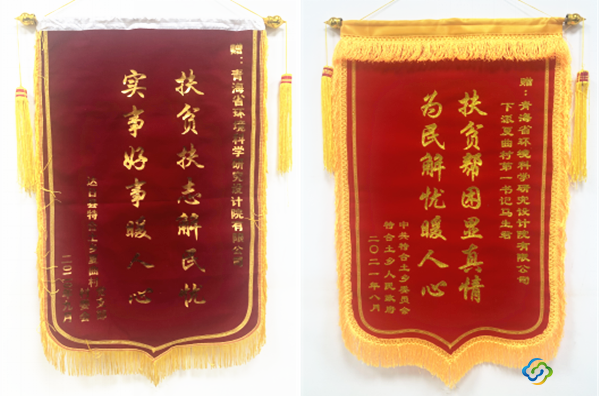 赠：青海省环境科学研究设计院有限公司
扶贫扶志解民忧
实事好事暖人心
夏曲村
赠：青海省环境科学研究设计院有限公司
下派夏曲村第一书记马生君
扶贫帮困显真情
为民解忧暖人心
中共特合土乡委员会
特合土乡人民政府
二〇二一年八月